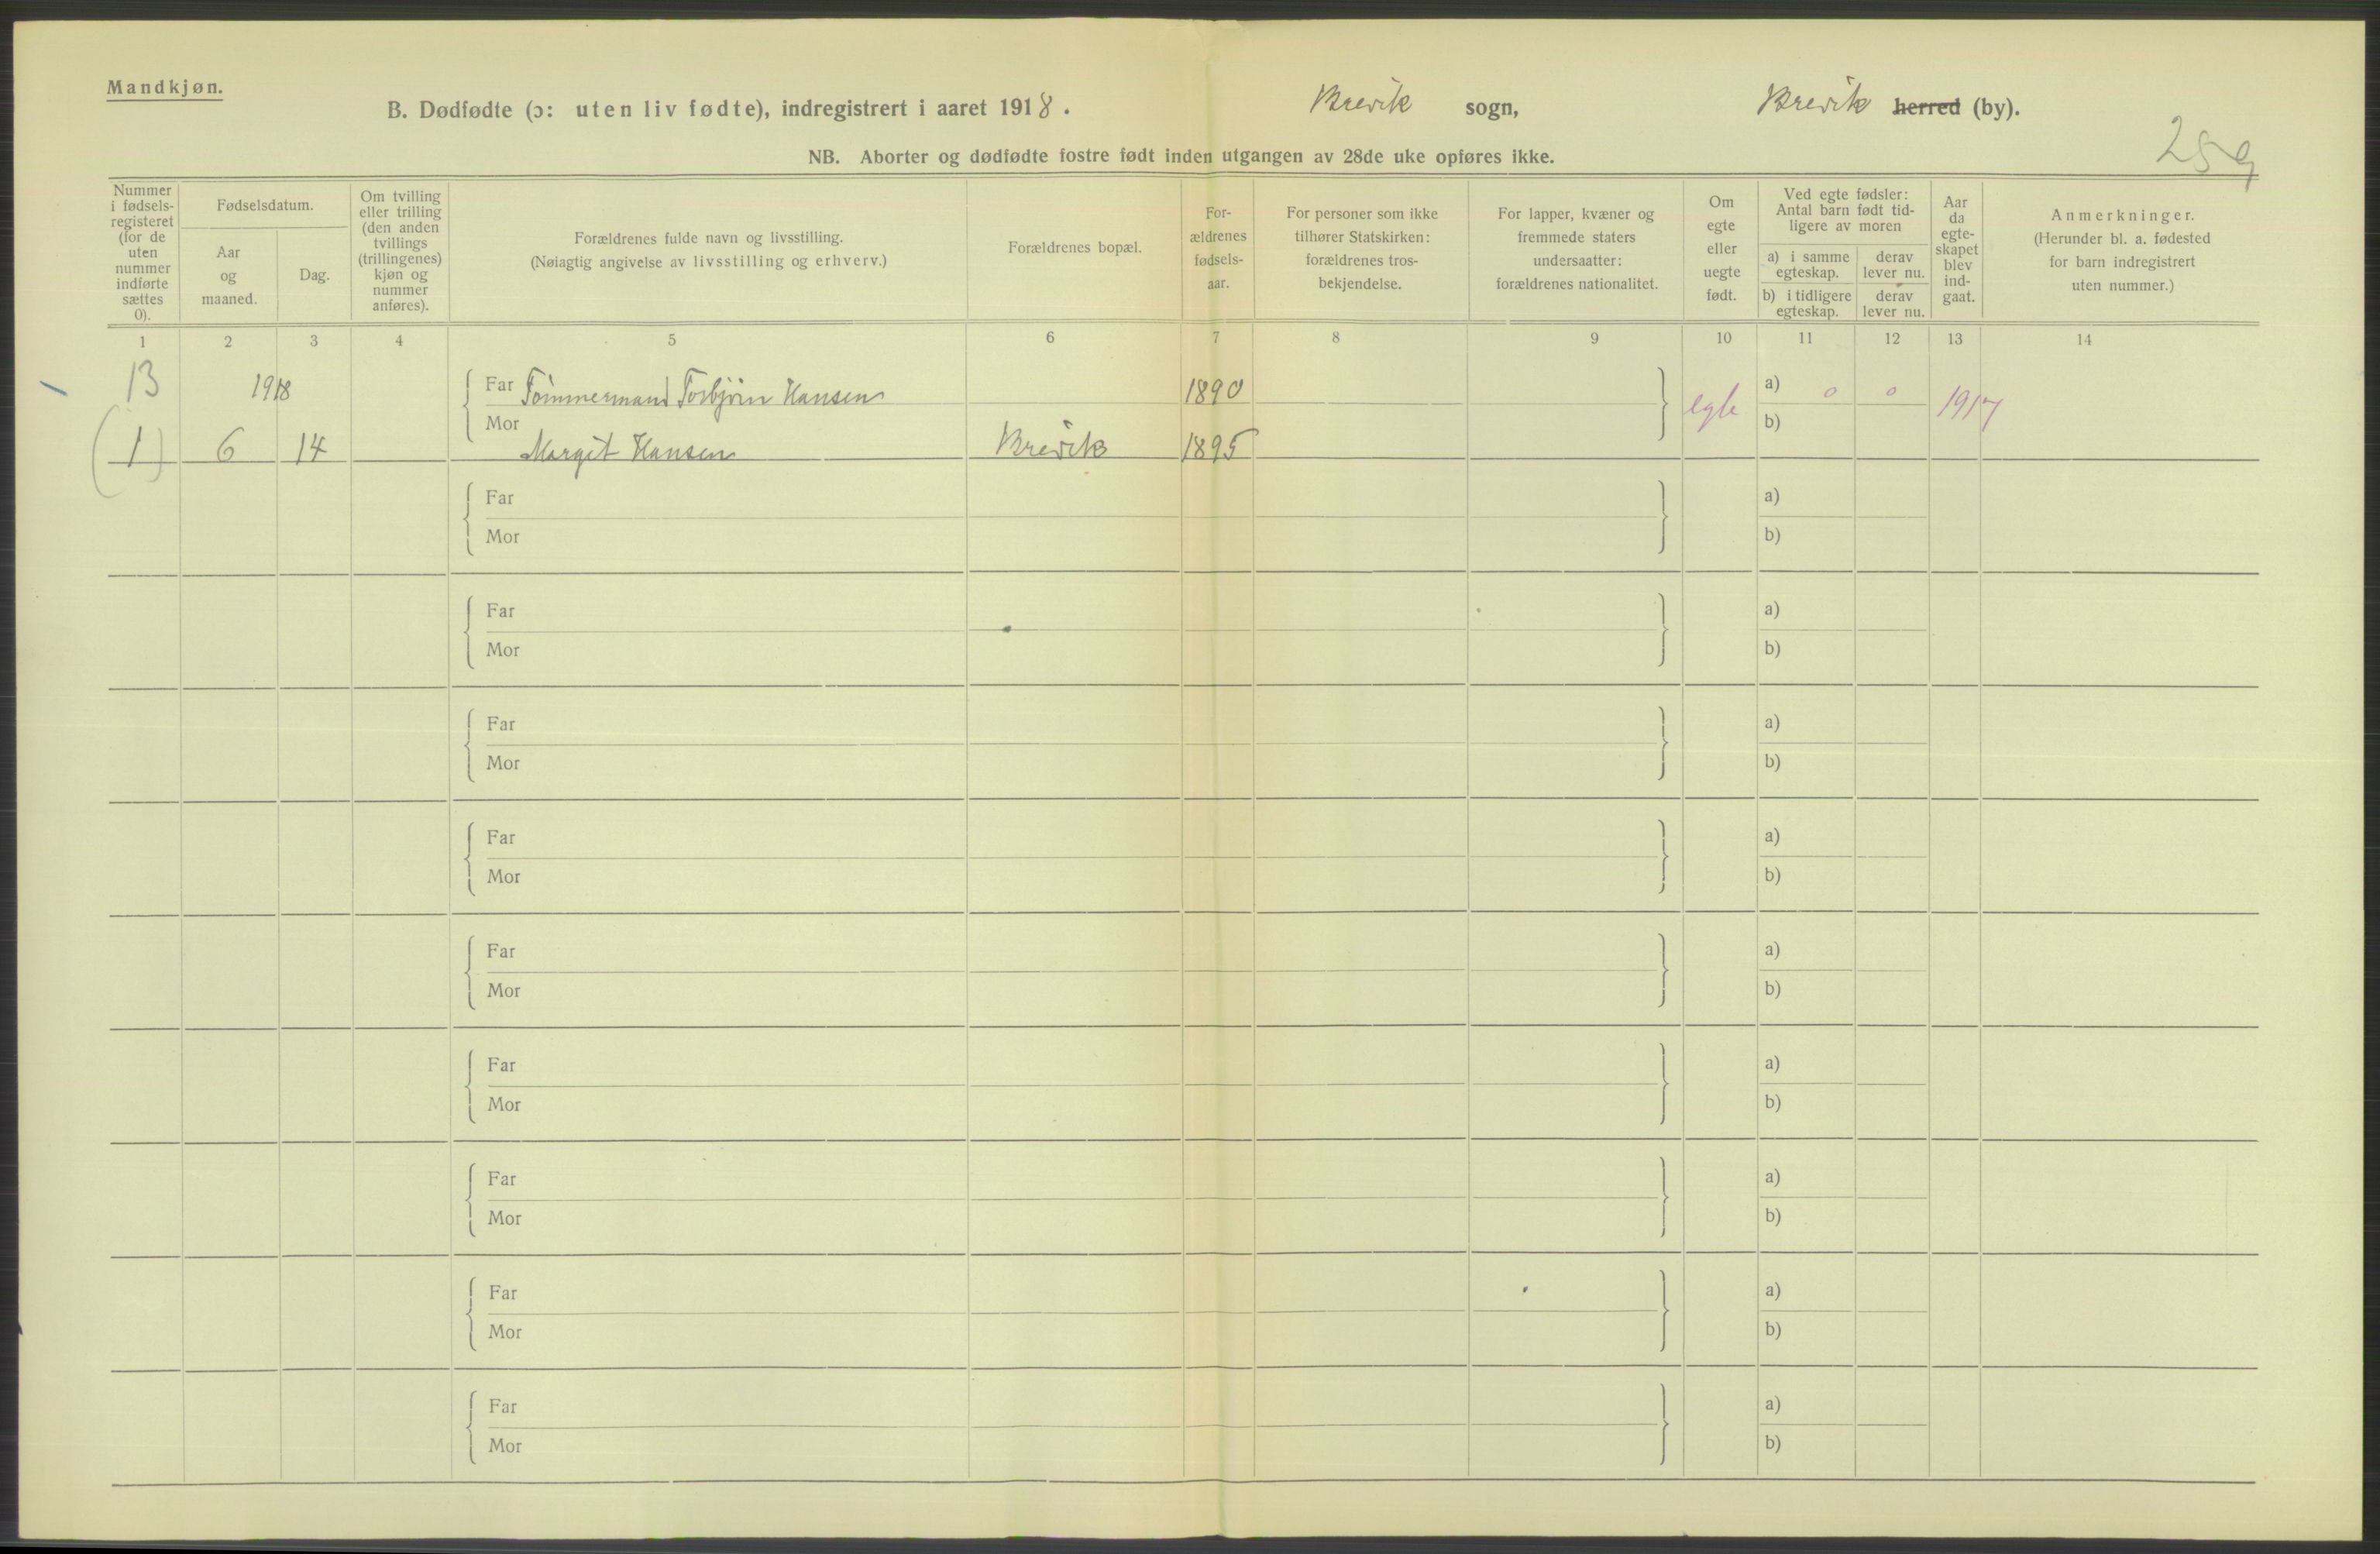 Mandkjøn.
B. Dødfødte (ɔ: uten liv fødte), indregistrert i aaret 1918. Brevik sogn, Brevik herred (by).
259
NB. Aborter og dødfødte fostre født inden utgangen av 28de uke opføres ikke.
Nummer i fødsels-registeret (for de uten nummer indførte sættes 0).
Fødselsdatum.
Aar og maaned.
Dag.
Om tvilling eller trilling (den anden tvillings (trillingenes) kjøn og nummer anføres).
Forældrenes fulde navn og livsstilling.
(Nøiagtig angivelse av livsstilling og erhverv.)
Forældrenes bopæl.
For-ældrenes fødsels-aar.
For personer som ikke tilhører Statskirken: forældrenes tros-bekjendelse.
For lapper, kvæner og fremmede staters undersaatter: forældrenes nationalitet.
Om egte eller uegte født.
Ved egte fødsler: Antal barn født tid-ligere av moren
a) i samme egteskap.
derav lever nu.
b) i tidligere egteskap.
derav lever nu.
Aar da egte-skapet blev ind-gaat.
Anmerkninger.
(Herunder bl. a. fødested for barn indregistrert uten nummer.)
1 2 3 4 5 6 7 8 9 10 11 12 13 14
13 1918 Far Tømmermand Torbjörn Hansen 1890 egte a) 0 0 1917
(1) 6 14 Mor Margit Hansen Brevik 1895 b)
Far a)
Mor b)
Far a)
Mor b)
Far a)
Mor b)
Far a)
Mor b)
Far a)
Mor b)
Far a)
Mor b)
Far a)
Mor b)
Far a)
Mor b)
Far a)
Mor b)